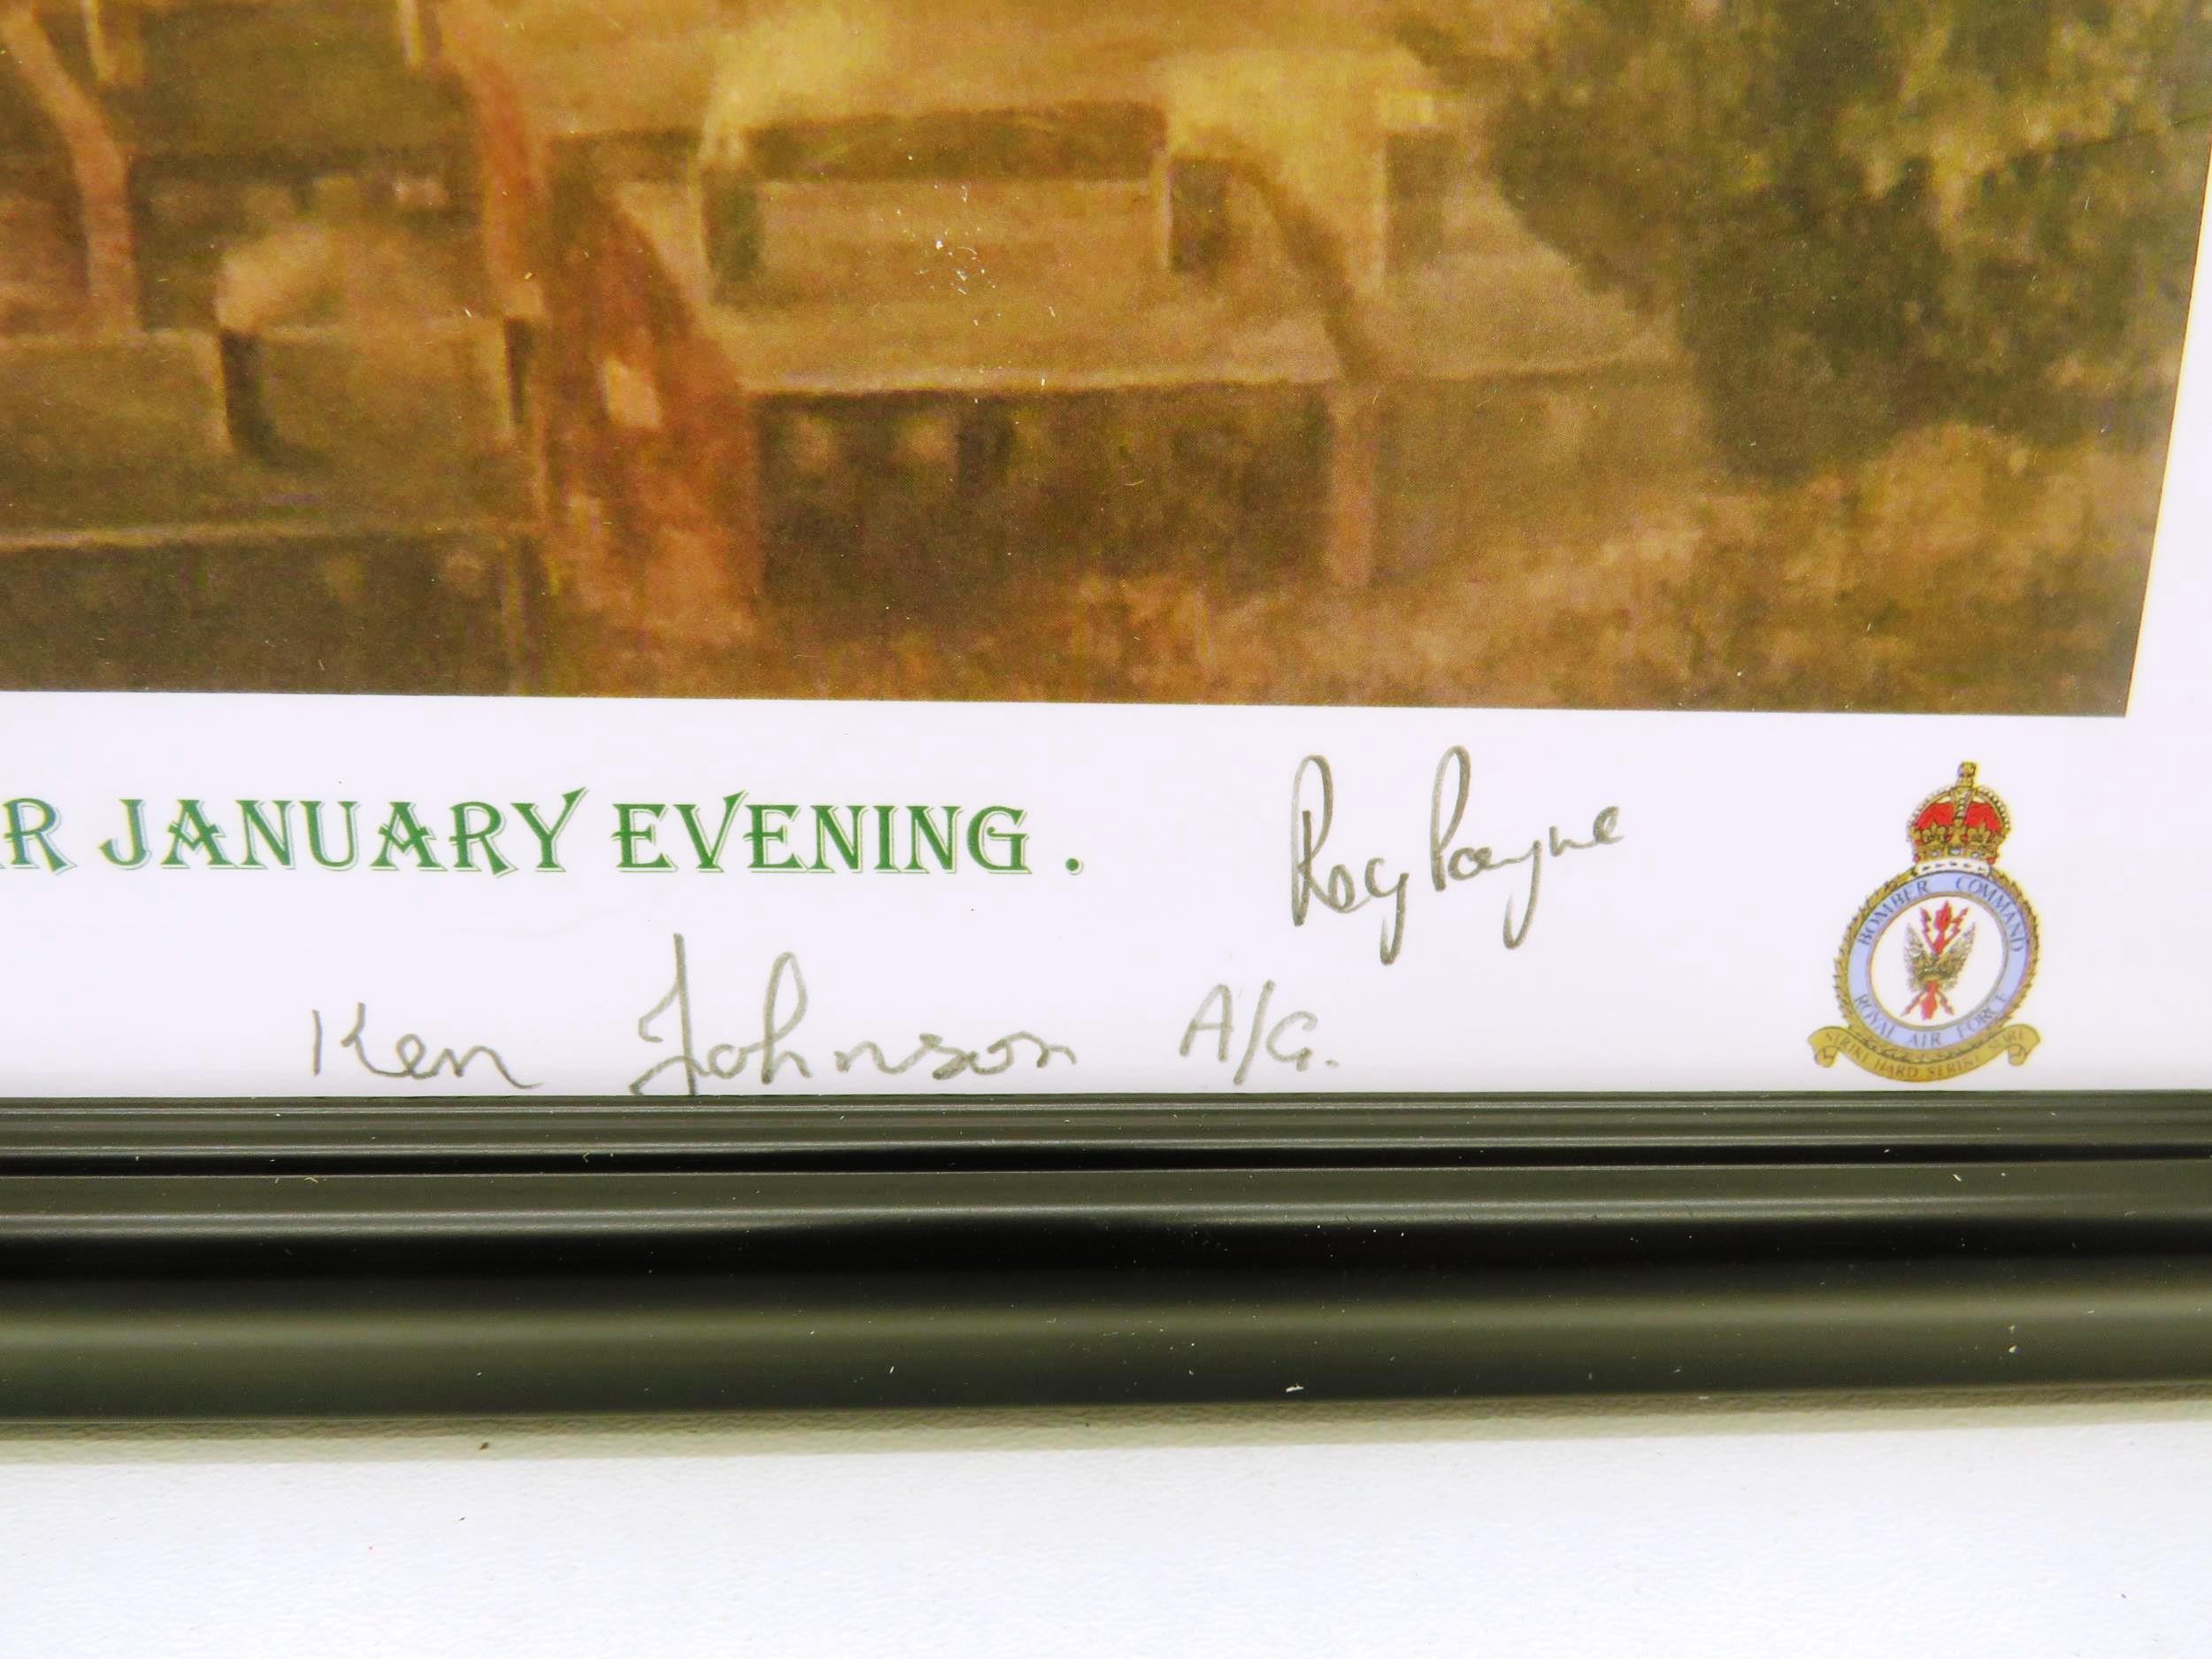 R JANUARY EVENING .
Roy Payne
Ken Johnson A/G.
BOMBER COMMAND
ROYAL AIR FORCE
STRIKE HARD STRIKE SURE